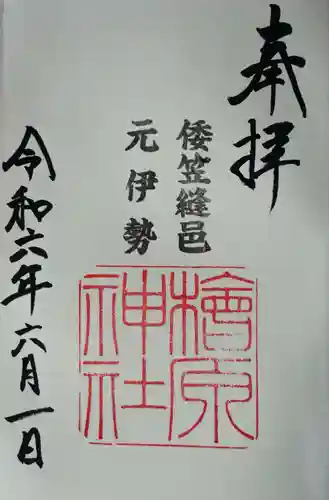 奉拝
倭笠縫邑
元伊勢
檜原
神社
令和六年六月一日